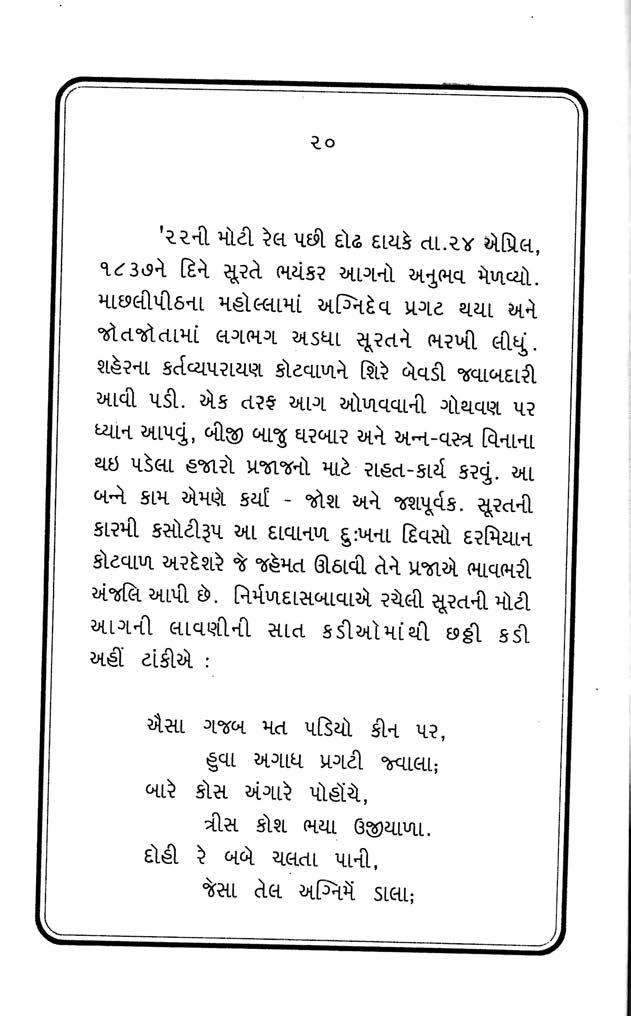 ૨૦
'૨૨ની મોટી રેલ પછી દોઢ દાયકે તા.૨૪ એપ્રિલ,
૧૮૩૭ને દિને સૂરતે ભયંકર આગનો અનુભવ મેળવ્યો.
માછલીપીઠના મહોલ્લામાં અગ્નિદેવ પ્રગટ થયા અને
જોતજોતામાં લગભગ અડધા સૂરતને ભરખી લીધું.
શહેરના કર્તવ્યપરાયણ કોટવાળને શિરે બેવડી જવાબદારી
આવી પડી. એક તરફ આગ ઓળવવાની ગોથવણ પર
ધ્યાન આપવું, બીજી બાજુ ઘરબાર અને અન્ન-વસ્ત્ર વિનાના
થઇ પડેલા હજારો પ્રજાજનો માટે રાહત-કાર્ય કરવું. આ
બન્ને કામ એમણે કર્યાં - જોશ અને જશપૂર્વક. સૂરતની
કારમી કસોટીરૂપ આ દાવાનળ દુઃખના દિવસો દરમિયાન
કોટવાળ અરદેશરે જે જહેમત ઊઠાવી તેને પ્રજાએ ભાવભરી
અંજલિ આપી છે. નિર્મળદાસબાવાએ રચેલી સૂરતની મોટી
આગની લાવણીની સાત કડીઓમાંથી છઠ્ઠી કડી
અહીં ટાંકીએ :
ઐસા ગજબ મત પડિયો કીન પર,
હુવા અગાધ પ્રગટી જ્વાલા;
બારે કોસ અંગારે પોહોંચે,
ત્રીસ કોશ ભયા ઉજીયાળા.
દોહી રે બબે ચલતા પાની,
જેસા તેલ અગ્નિમેં ડાલા;